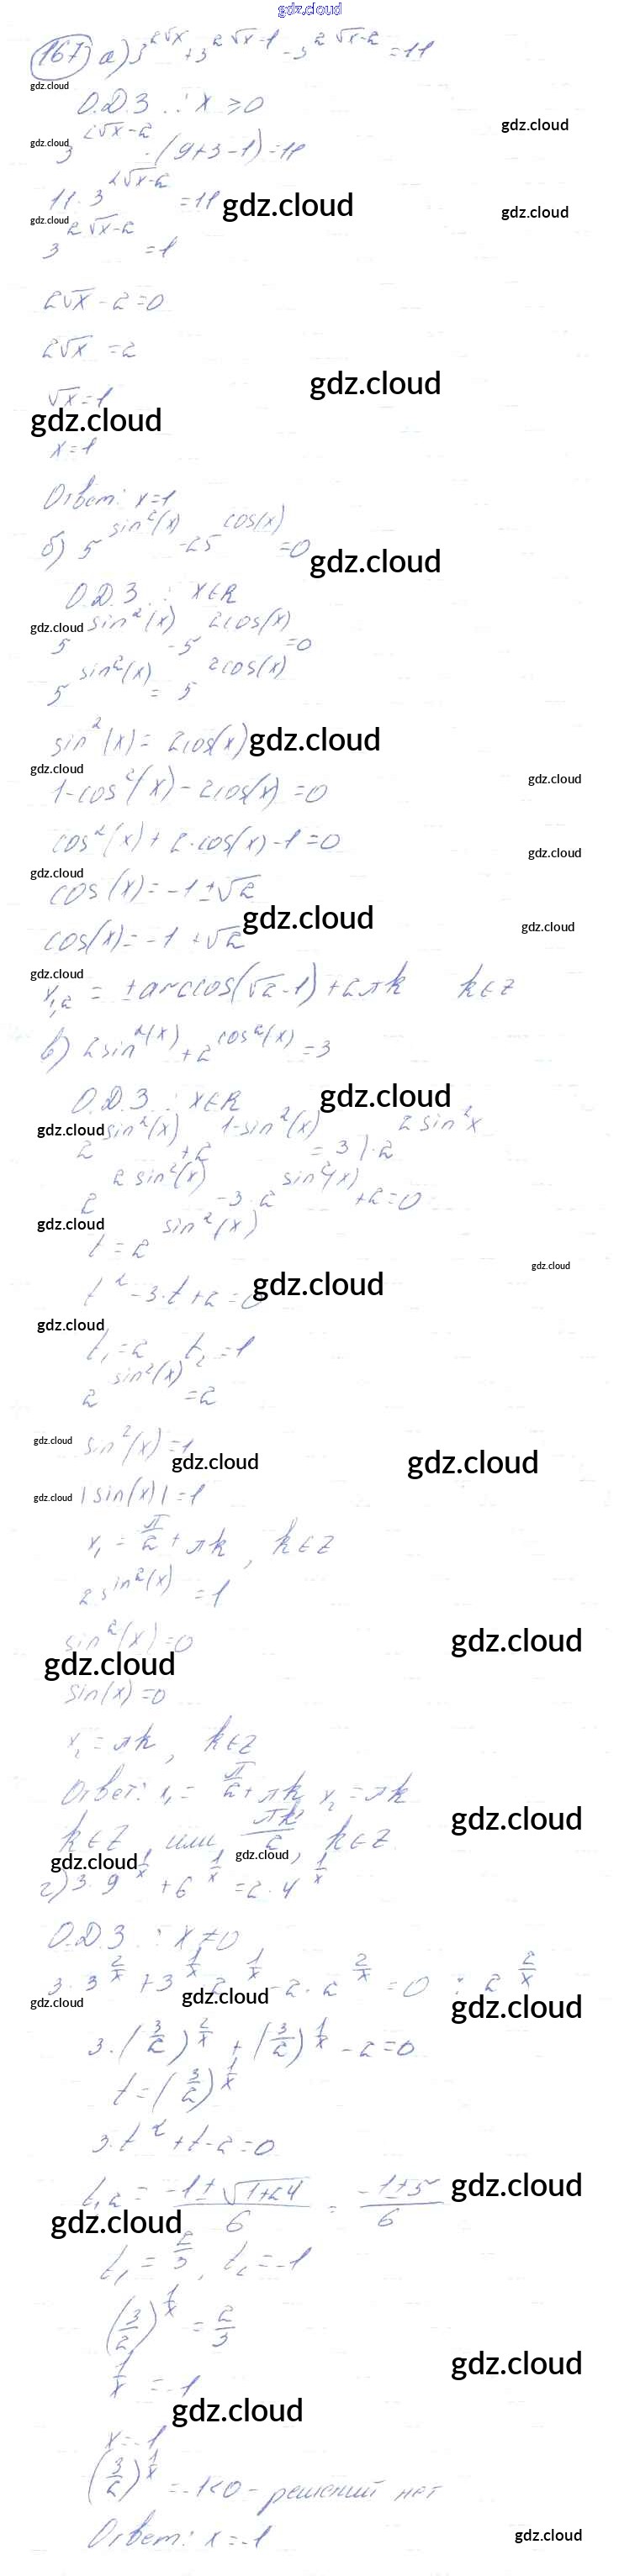 gdz.cloud
167 а) 3^(2√x) + 3^(2√x-1) - 3^(2√x-2) = 11
gdz.cloud
О.Д.З.: x ≥ 0
gdz.cloud
gdz.cloud
3^(2√x-2) · (9+3-1) = 11
11 · 3^(2√x-2) = 11
gdz.cloud
gdz.cloud
gdz.cloud
3^(2√x-2) = 1
2√x - 2 = 0
2√x = 2
gdz.cloud
√x = 1
gdz.cloud
x = 1
Ответ: x = 1
б) 5^(sin²(x)) - 25^(cos(x)) = 0
gdz.cloud
О.Д.З.: x∈R
gdz.cloud
5^(sin²(x)) - 5^(2cos(x)) = 0
5^(sin²(x)) = 5^(2cos(x))
sin²(x) = 2cos(x)
gdz.cloud
gdz.cloud
gdz.cloud
1 - cos²(x) - 2cos(x) = 0
cos²(x) + 2·cos(x) - 1 = 0
gdz.cloud
gdz.cloud
cos(x) = -1 ± √2
gdz.cloud
gdz.cloud
cos(x) = -1 + √2
gdz.cloud
x₁,₂ = ± arccos(√2-1) + 2πk k∈Z
в) 2^(sin²(x)) + 2^(cos²(x)) = 3
О.Д.З.: x∈R
gdz.cloud
gdz.cloud
2^(sin²(x)) + 2^(1-sin²(x)) = 3 | · 2^(sin²x)
2^(2sin²(x)) - 3·2^(sin²(x)) + 2 = 0
gdz.cloud
t = 2^(sin²(x))
gdz.cloud
t² - 3·t + 2 = 0
gdz.cloud
gdz.cloud
t₁ = 2 t₂ = 1
2^(sin²(x)) = 2
gdz.cloud
sin²(x) = 1
gdz.cloud
gdz.cloud
gdz.cloud
|sin(x)| = 1
x₁ = π/2 + πk, k∈Z
2^(sin²(x)) = 1
sin²(x) = 0
gdz.cloud
gdz.cloud
sin(x) = 0
x₂ = πk, k∈Z
Ответ: x₁ = π/2 + πk x₂ = πk
gdz.cloud
k∈Z, или πk/2, k∈Z
gdz.cloud
gdz.cloud
г) 3·9^(1/x) + 6^(1/x) = 2·4^(1/x)
О.Д.З.: x ≠ 0
3·3^(2/x) + 3^(1/x)·2^(1/x) - 2·2^(2/x) = 0 : 2^(2/x)
gdz.cloud
gdz.cloud
gdz.cloud
3·(3/2)^(2/x) + (3/2)^(1/x) - 2 = 0
t = (3/2)^(1/x)
3·t² + t - 2 = 0
t₁,₂ = (-1 ± √(1+24))/6 = (-1±5)/6
gdz.cloud
gdz.cloud
t₁ = 2/3, t₂ = -1
(3/2)^(1/x) = 2/3
1/x = -1
gdz.cloud
gdz.cloud
x = -1
(3/2)^(1/x) = -1 < 0 - решений нет
Ответ: x = -1
gdz.cloud